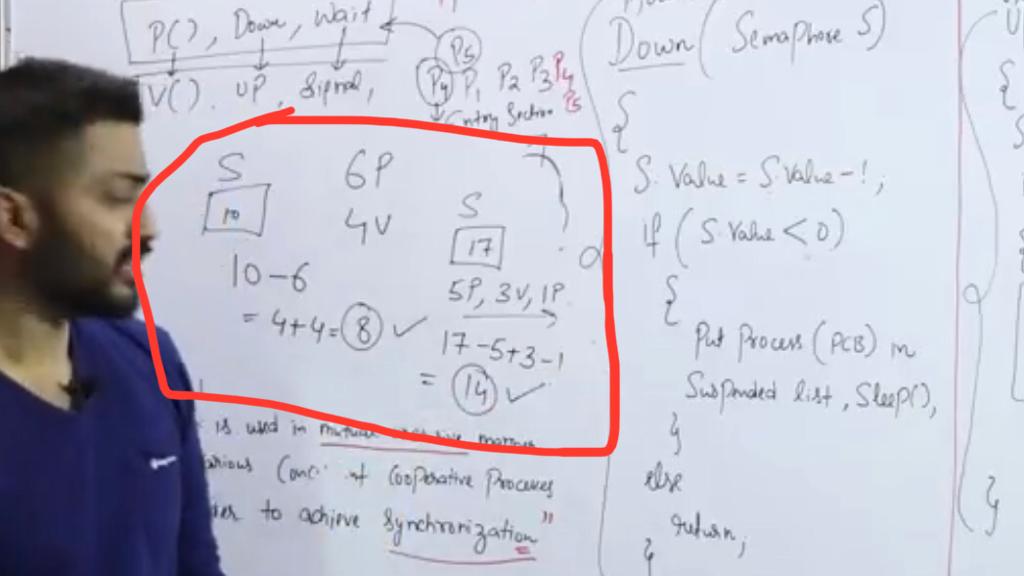 P(), Down, Wait
V(). UP, Signal,
P5
P4 P1 P2 P3 P4
P5
Entry Section
S 6P
10 4V
10-6
= 4+4= 8 ✓
S
17
5P, 3V, 1P
17-5+3-1
= 14 ✓
is used in mutual exclusive manner
Cooperative Processes
to achieve Synchronization"
Down( Semaphore S)
{
S. Value = S. Value - 1;
if ( S. Value < 0)
{
Put Process (PCB) in
Suspended list, Sleep();
}
else
return;
}
U
{
S
}